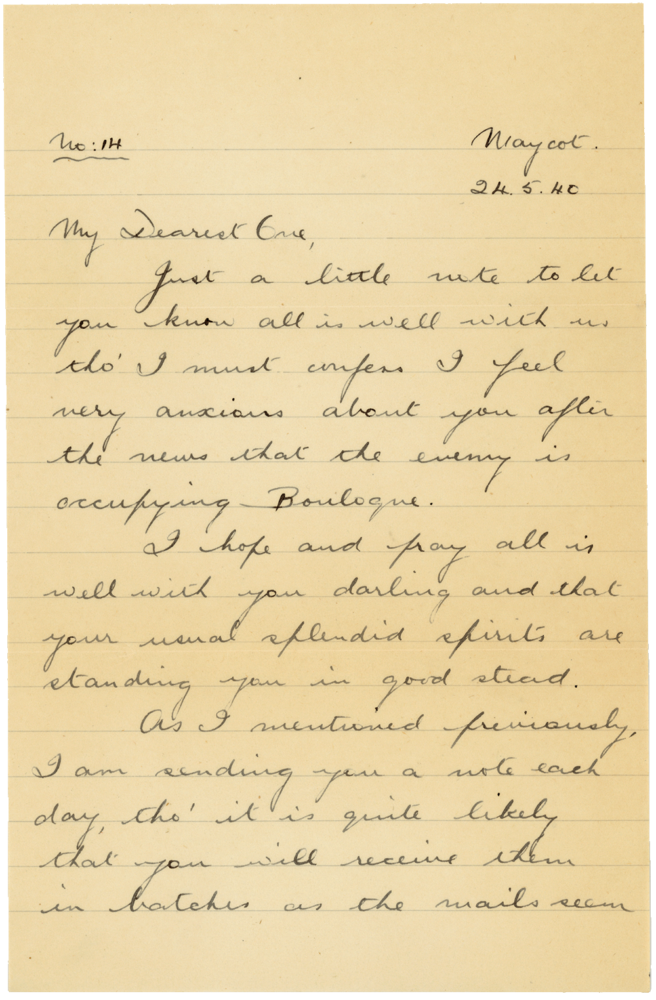 No: 14
Maycot.
24.5.40
My Dearest One,
Just a little note to let
you know all is well with us
tho' I must confess I feel
very anxious about you after
the news that the enemy is
occupying Boulogne.
I hope and pray all is
well with you darling and that
your usual splendid spirits are
standing you in good stead.
As I mentioned previously,
I am sending you a note each
day, tho' it is quite likely
that you will receive them
in batches as the mails seem